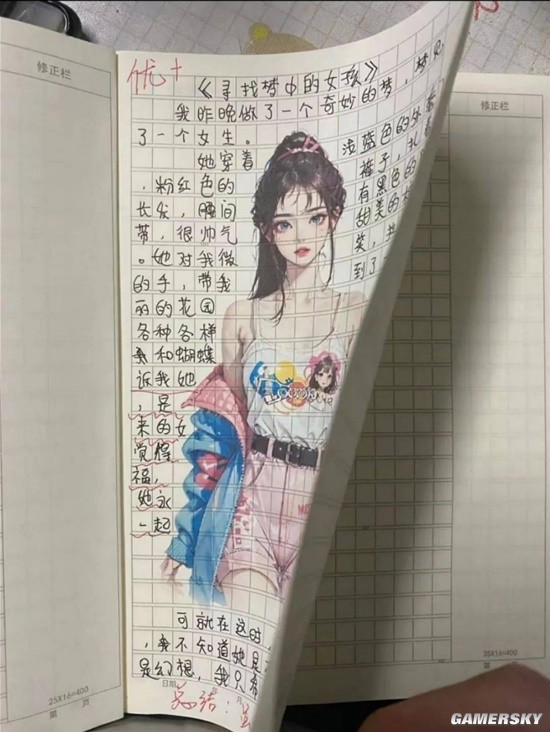 修正栏
优+
《寻找梦中的女孩》
我昨晚做了一个奇妙的梦,梦见
了一个女生。
她穿着 浅蓝色的外
,粉红色的 裤子,扎
长发,腰间 有黑色的
带,很帅气 甜美的
。她对我微 笑,
的手,带我 到了
丽的花园
各种各样
和蝴蝶
诉我她
是
来的女
觉得
福,
她永
一起
可就在这时,
,我不知道她是
是幻想,我只希
日期
25X16=400
第 页
修正栏
25X16=400
第 页
GAMERSKY